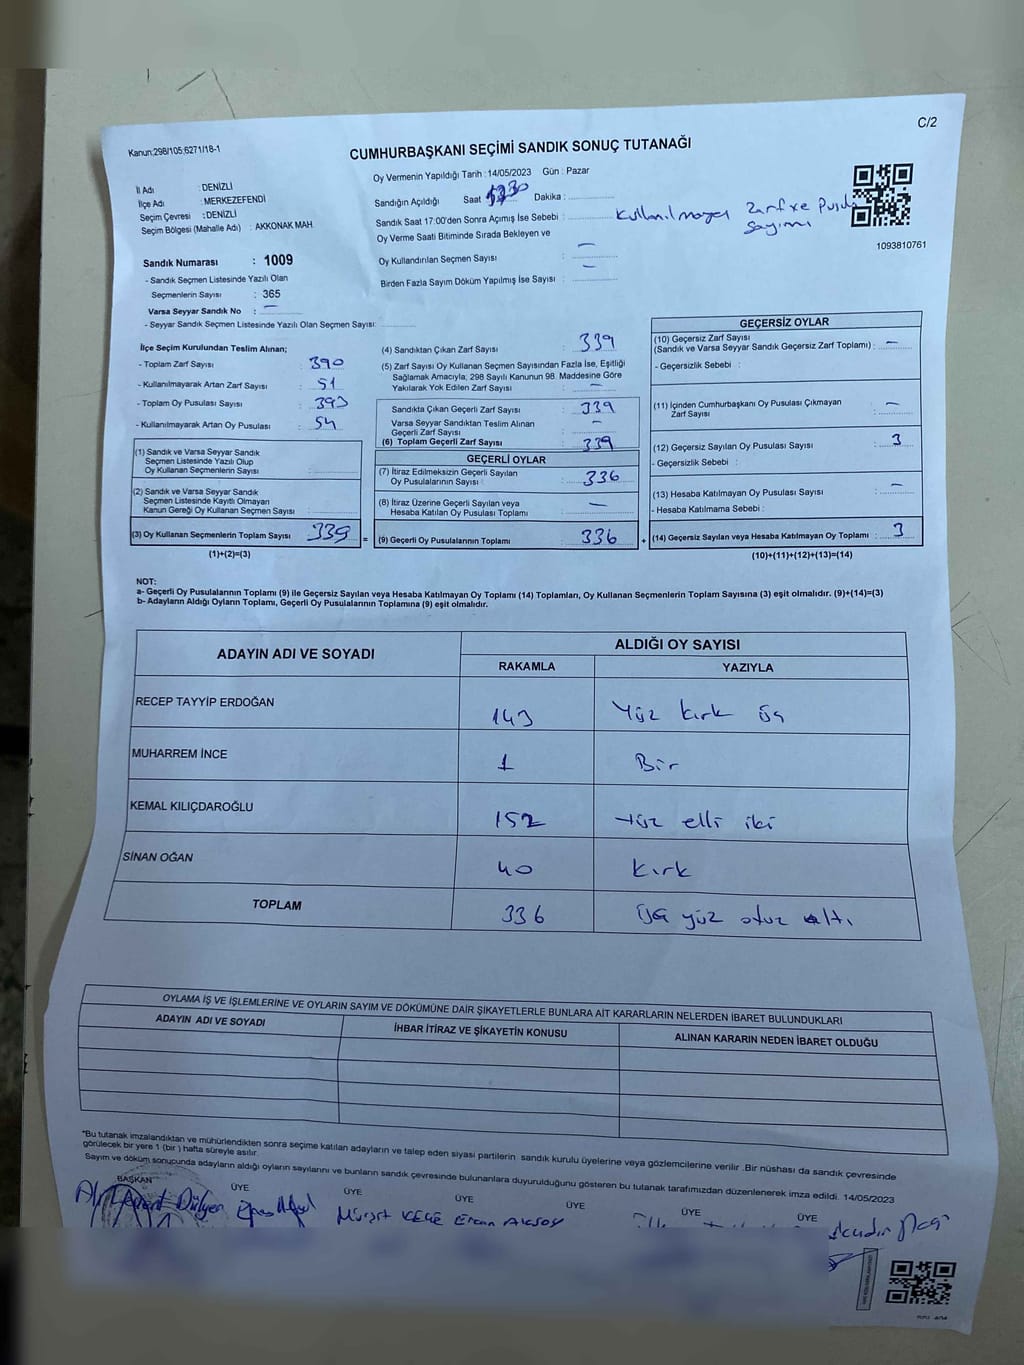 C/2
Kanun:298/105;6271/18-1
CUMHURBAŞKANI SEÇİMİ SANDIK SONUÇ TUTANAĞI
Oy Vermenin Yapıldığı Tarih : 14/05/2023 Gün : Pazar
İl Adı : DENİZLİ
İlçe Adı : MERKEZEFENDİ
Seçim Çevresi : DENİZLİ
Seçim Bölgesi (Mahalle Adı) : AKKONAK MAH
Sandığın Açıldığı Saat Dakika :
Sandık Saat 17:00'den Sonra Açımış İse Sebebi : Kullanılmayan Zarf ve
Sayımı
Oy Verme Saati Bitiminde Sırada Bekleyen ve
Oy Kullandırılan Seçmen Sayısı : —
Birden Fazla Sayım Döküm Yapılmış İse Sayısı : —
1093810761
Sandık Numarası : 1009
- Sandık Seçmen Listesinde Yazılı Olan
Seçmenlerin Sayısı : 365
Varsa Seyyar Sandık No : —
- Seyyar Sandık Seçmen Listesinde Yazılı Olan Seçmen Sayısı:
İlçe Seçim Kurulundan Teslim Alınan;
- Toplam Zarf Sayısı : 390
- Kullanılmayarak Artan Zarf Sayısı : 51
- Toplam Oy Pusulası Sayısı : 393
- Kullanılmayarak Artan Oy Pusulası : 54
(1) Sandık ve Varsa Seyyar Sandık
Seçmen Listesinde Yazılı Olup
Oy Kullanan Seçmenlerin Sayısı :
(2) Sandık ve Varsa Seyyar Sandık
Seçmen Listesinde Kayıtlı Olmayan
Kanun Gereği Oy Kullanan Seçmen Sayısı :
(3) Oy Kullanan Seçmenlerin Toplam Sayısı : 339 =
(1)+(2)=(3)
(4) Sandıktan Çıkan Zarf Sayısı : 339
(5) Zarf Sayısı Oy Kullanan Seçmen Sayısından Fazla İse, Eşitliği
Sağlamak Amacıyla, 298 Sayılı Kanunun 98. Maddesine Göre
Yakılarak Yok Edilen Zarf Sayısı : —
Sandıkta Çıkan Geçerli Zarf Sayısı : 339
Varsa Seyyar Sandıktan Teslim Alınan
Geçerli Zarf Sayısı : —
(6) Toplam Geçerli Zarf Sayısı : 339
GEÇERLİ OYLAR
(7) İtiraz Edilmeksizin Geçerli Sayılan
Oy Pusulalarının Sayısı : 336
(8) İtiraz Üzerine Geçerli Sayılan veya
Hesaba Katılan Oy Pusulası Toplamı : —
(9) Geçerli Oy Pusulalarının Toplamı : 336 +
GEÇERSİZ OYLAR
(10) Geçersiz Zarf Sayısı
(Sandık ve Varsa Seyyar Sandık Geçersiz Zarf Toplamı) : —
- Geçersizlik Sebebi :
(11) İçinden Cumhurbaşkanı Oy Pusulası Çıkmayan
Zarf Sayısı : —
(12) Geçersiz Sayılan Oy Pusulası Sayısı : 3
- Geçersizlik Sebebi :
(13) Hesaba Katılmayan Oy Pusulası Sayısı : —
- Hesaba Katılmama Sebebi :
(14) Geçersiz Sayılan veya Hesaba Katılmayan Oy Toplamı : 3
(10)+(11)+(12)+(13)=(14)
NOT:
a- Geçerli Oy Pusulalarının Toplamı (9) ile Geçersiz Sayılan veya Hesaba Katılmayan Oy Toplamı (14) Toplamları, Oy Kullanan Seçmenlerin Toplam Sayısına (3) eşit olmalıdır. (9)+(14)=(3)
b- Adayların Aldığı Oyların Toplamı, Geçerli Oy Pusulalarının Toplamına (9) eşit olmalıdır.
ADAYIN ADI VE SOYADI ALDIĞI OY SAYISI
RAKAMLA YAZIYLA
RECEP TAYYİP ERDOĞAN 143 Yüz kırk üç
MUHARREM İNCE 1 Bir
KEMAL KILIÇDAROĞLU 152 Yüz elli iki
SİNAN OĞAN 40 Kırk
TOPLAM 336 Üç yüz otuz altı
OYLAMA İŞ VE İŞLEMLERİNE VE OYLARIN SAYIM VE DÖKÜMÜNE DAİR ŞİKAYETLERLE BUNLARA AİT KARARLARIN NELERDEN İBARET BULUNDUKLARI
ADAYIN ADI VE SOYADI İHBAR İTİRAZ VE ŞİKAYETİN KONUSU ALINAN KARARIN NEDEN İBARET OLDUĞU
*Bu tutanak imzalandıktan ve mühürlendikten sonra seçime katılan adayların ve talep eden siyasi partilerin sandık kurulu üyelerine veya gözlemcilerine verilir .Bir nüshası da sandık çevresinde
görülecek bir yere 1 (bir ) hafta süreyle asılır.
Sayım ve döküm sonucunda adayların aldığı oyların sayılarını ve bunların sandık çevresinde bulunanlara duyurulduğunu gösteren bu tutanak tarafımızdan düzenlenerek imza edildi. 14/05/2023
BAŞKAN ÜYE ÜYE ÜYE ÜYE ÜYE ÜYE
Mürşit Ercan Aksoy